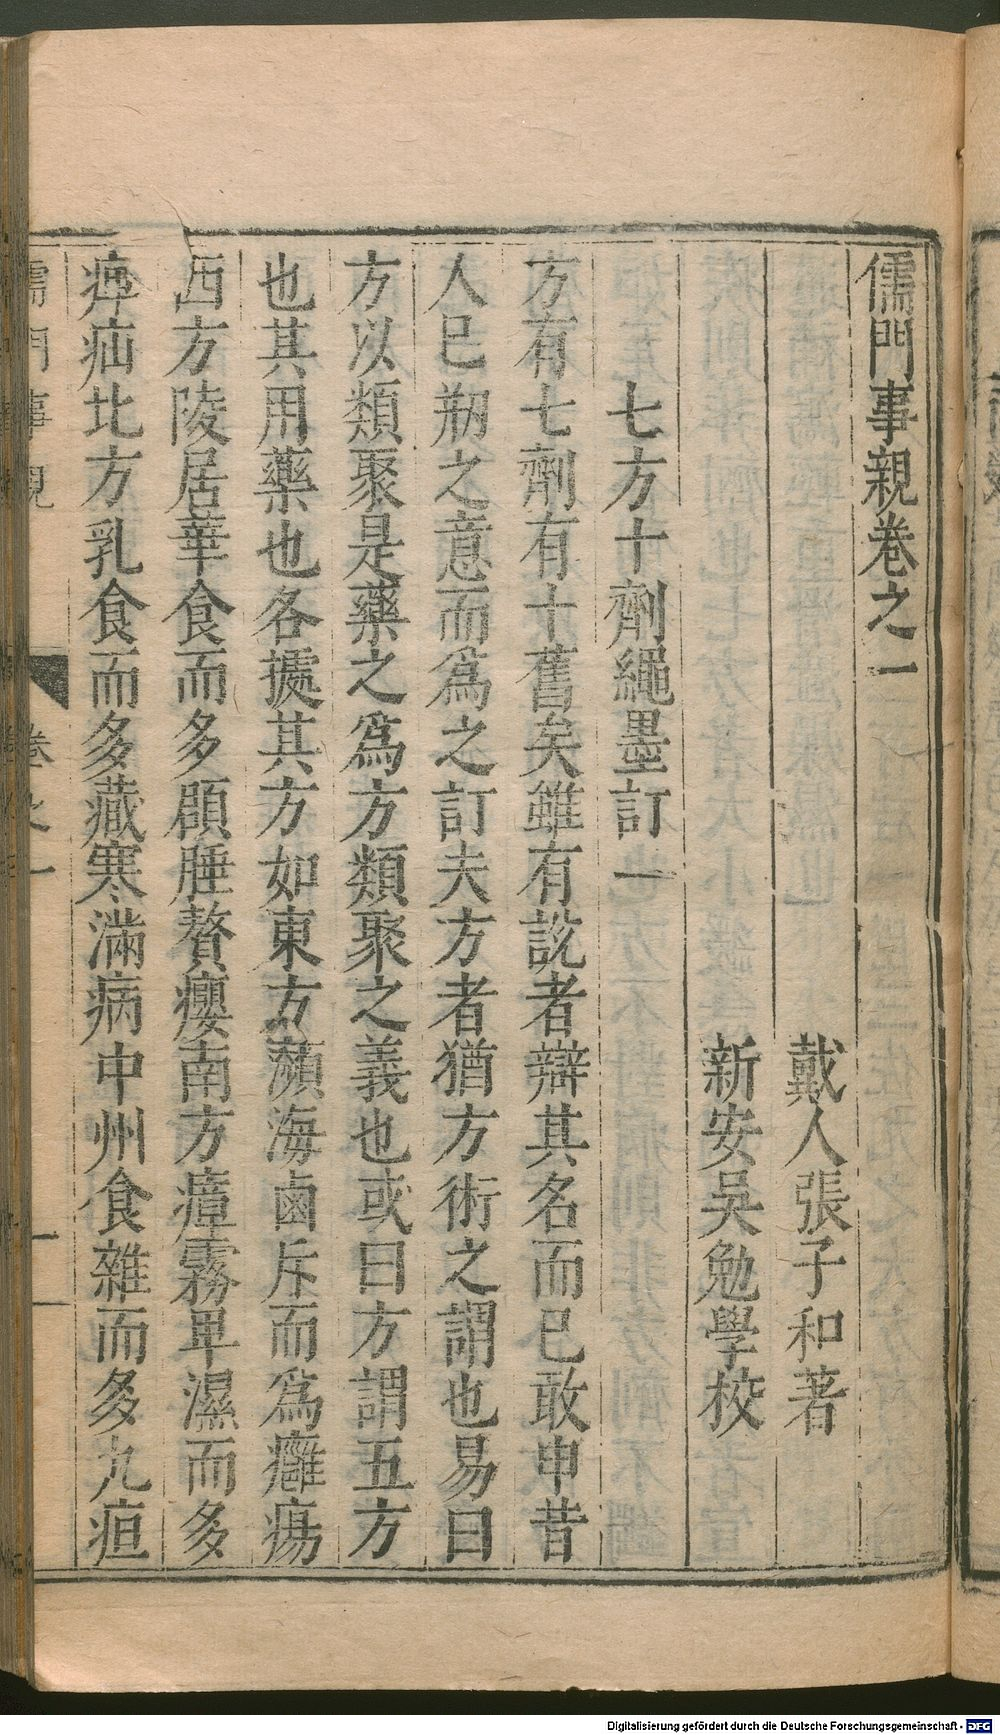 儒門事親卷之一
戴人張子和著
新安吳勉學校
七方十劑繩墨訂一
方有七劑有十舊矣雖有說者辯其名而已敢申昔
人已剏之意而爲之訂夫方者猶方術之謂也易曰
方以類聚是藥之爲方類聚之義也或曰方謂五方
也其用藥也各據其方如東方瀕海鹵斥而爲癰瘍
西方陵居華食而多頤腄贅癭南方瘴霧卑濕而多
痺疝北方乳食而多藏寒滿病中州食雜而多九疸
儒門事親 卷之一 一
Digitalisierung gefördert durch die Deutsche Forschungsgemeinschaft - DFG